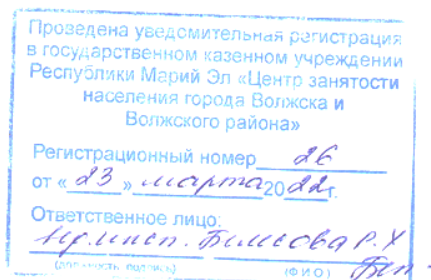 Проведена уведомительная регистрация
в государственном казенном учреждении
Республики Марий Эл «Центр занятости
населения города Волжска и
Волжского района»
Регистрационный номер 26
от « 23 » марта 2022г.
Ответственное лицо:
Р.Х
(должность, подпись) (ФИО)